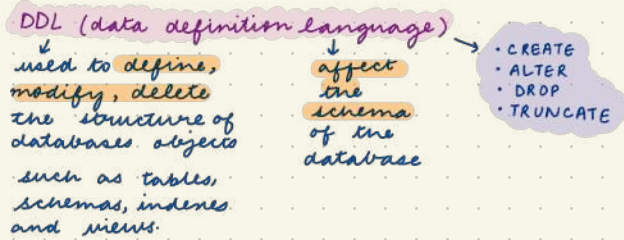 DDL (data definition language)
used to define,
modify, delete
the structure of
databases objects
such as tables,
schemas, indexes
and views.
affect
the
schema
of the
database
• CREATE
• ALTER
• DROP
• TRUNCATE